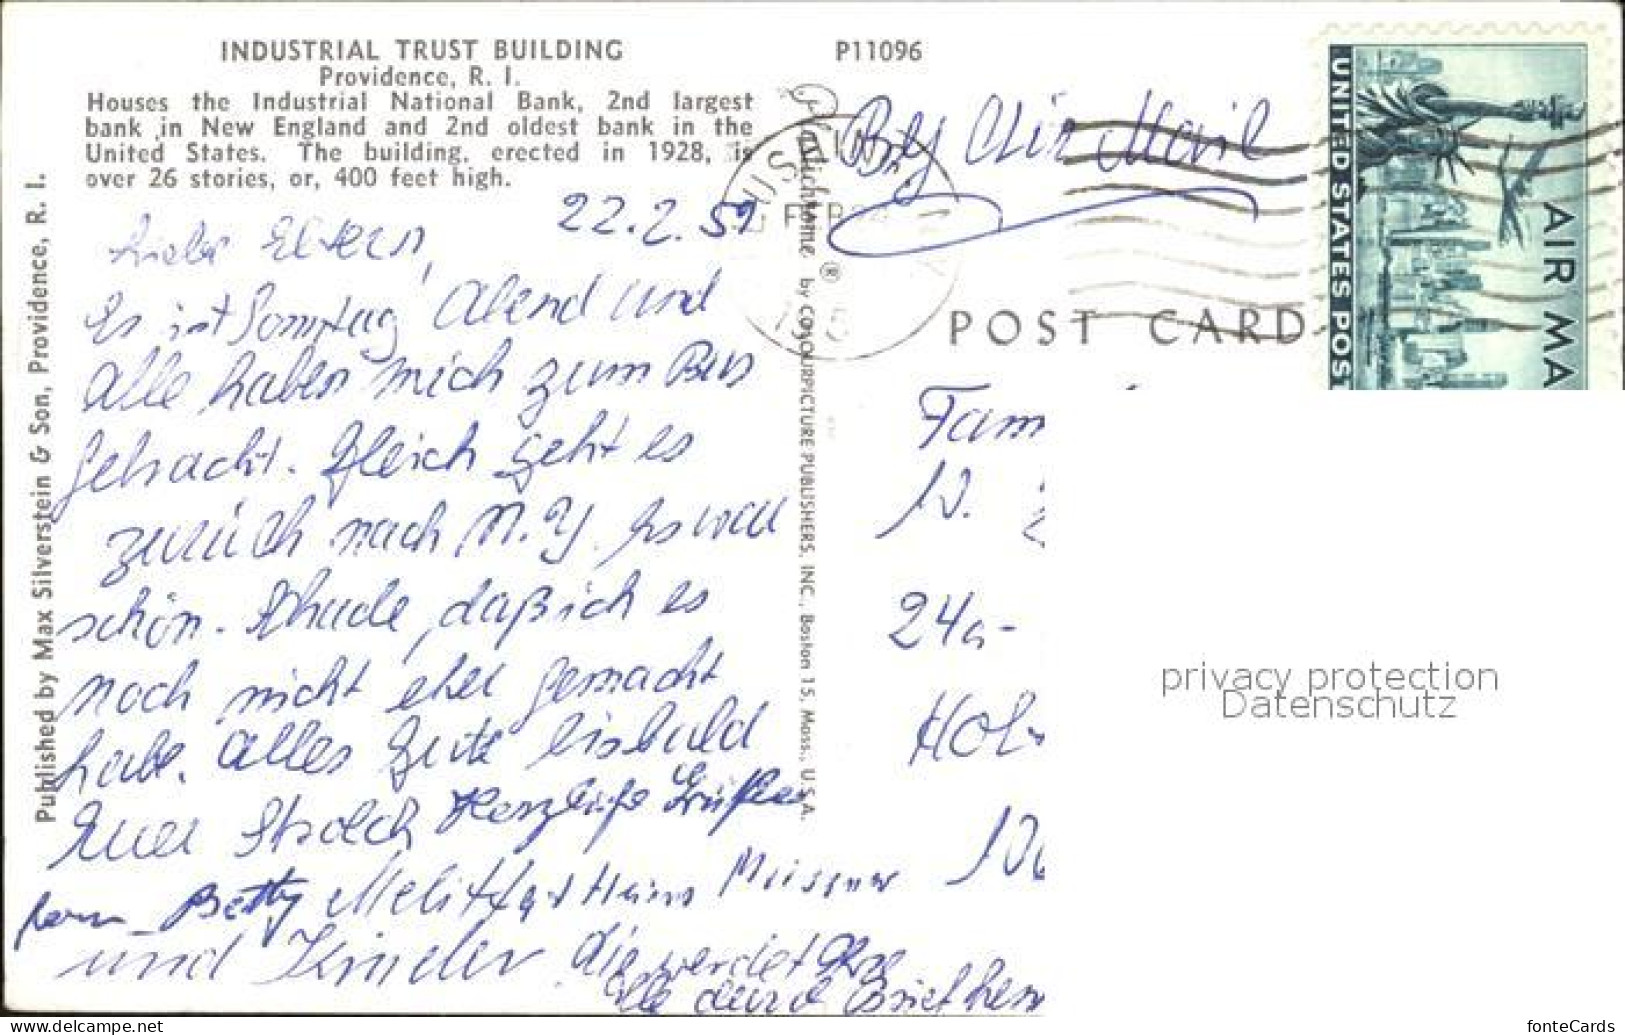 INDUSTRIAL TRUST BUILDING
Providence, R. I.
Houses the Industrial National Bank, 2nd largest
bank in New England and 2nd oldest bank in the
United States. The building, erected in 1928, is
over 26 stories, or, 400 feet high.
P11096
By Air Mail
UNITED STATES POST
AIR MA
POST CARD
Published by Max Silverstein & Son, Providence, R. I.
by COLOURPICTURE PUBLISHERS, INC., Boston 15, Mass., U.S.A.
22.2.59
Liebe Eltern,
Es ist Sonntag Abend und
alle haben mich zum Bus
gebracht. Gleich geht es
zurück nach N.Y. Es war
schön. Schade, daß ich es
noch nicht eher gemacht
habe. Alles Gute bis bald
Euer Strolch Herzliche Grüße
Betty Heins Meissner
und Kinder die werdet
alle durch
Fam
W.
24a-
Hol
privacy protection
Datenschutz
www.delcampe.net
fonteCards